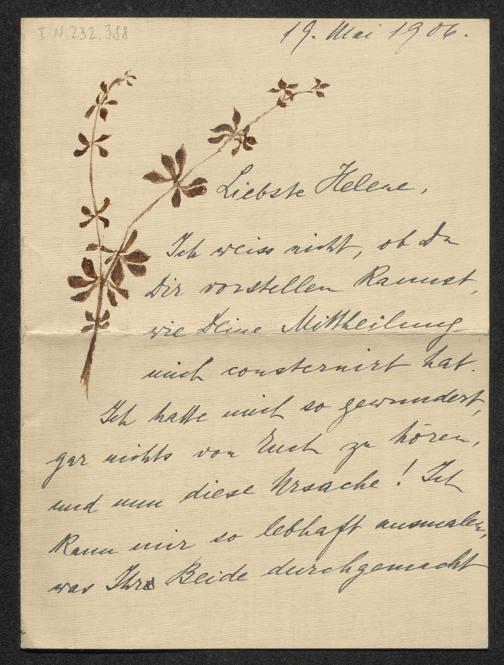 I.N. 232.388
19. Mai 1906.
Liebste Helene,
Ich weiss nicht, ob Du
Dir vorstellen kannst,
wie Deine Mittheilung
mich consternirt hat.
Ich hatte mich so gewundert,
gar nichts von Euch zu hören,
und nun diese Ursache! Ich
kann mir so lebhaft ausmalen,
was Ihr Beide durchgemacht